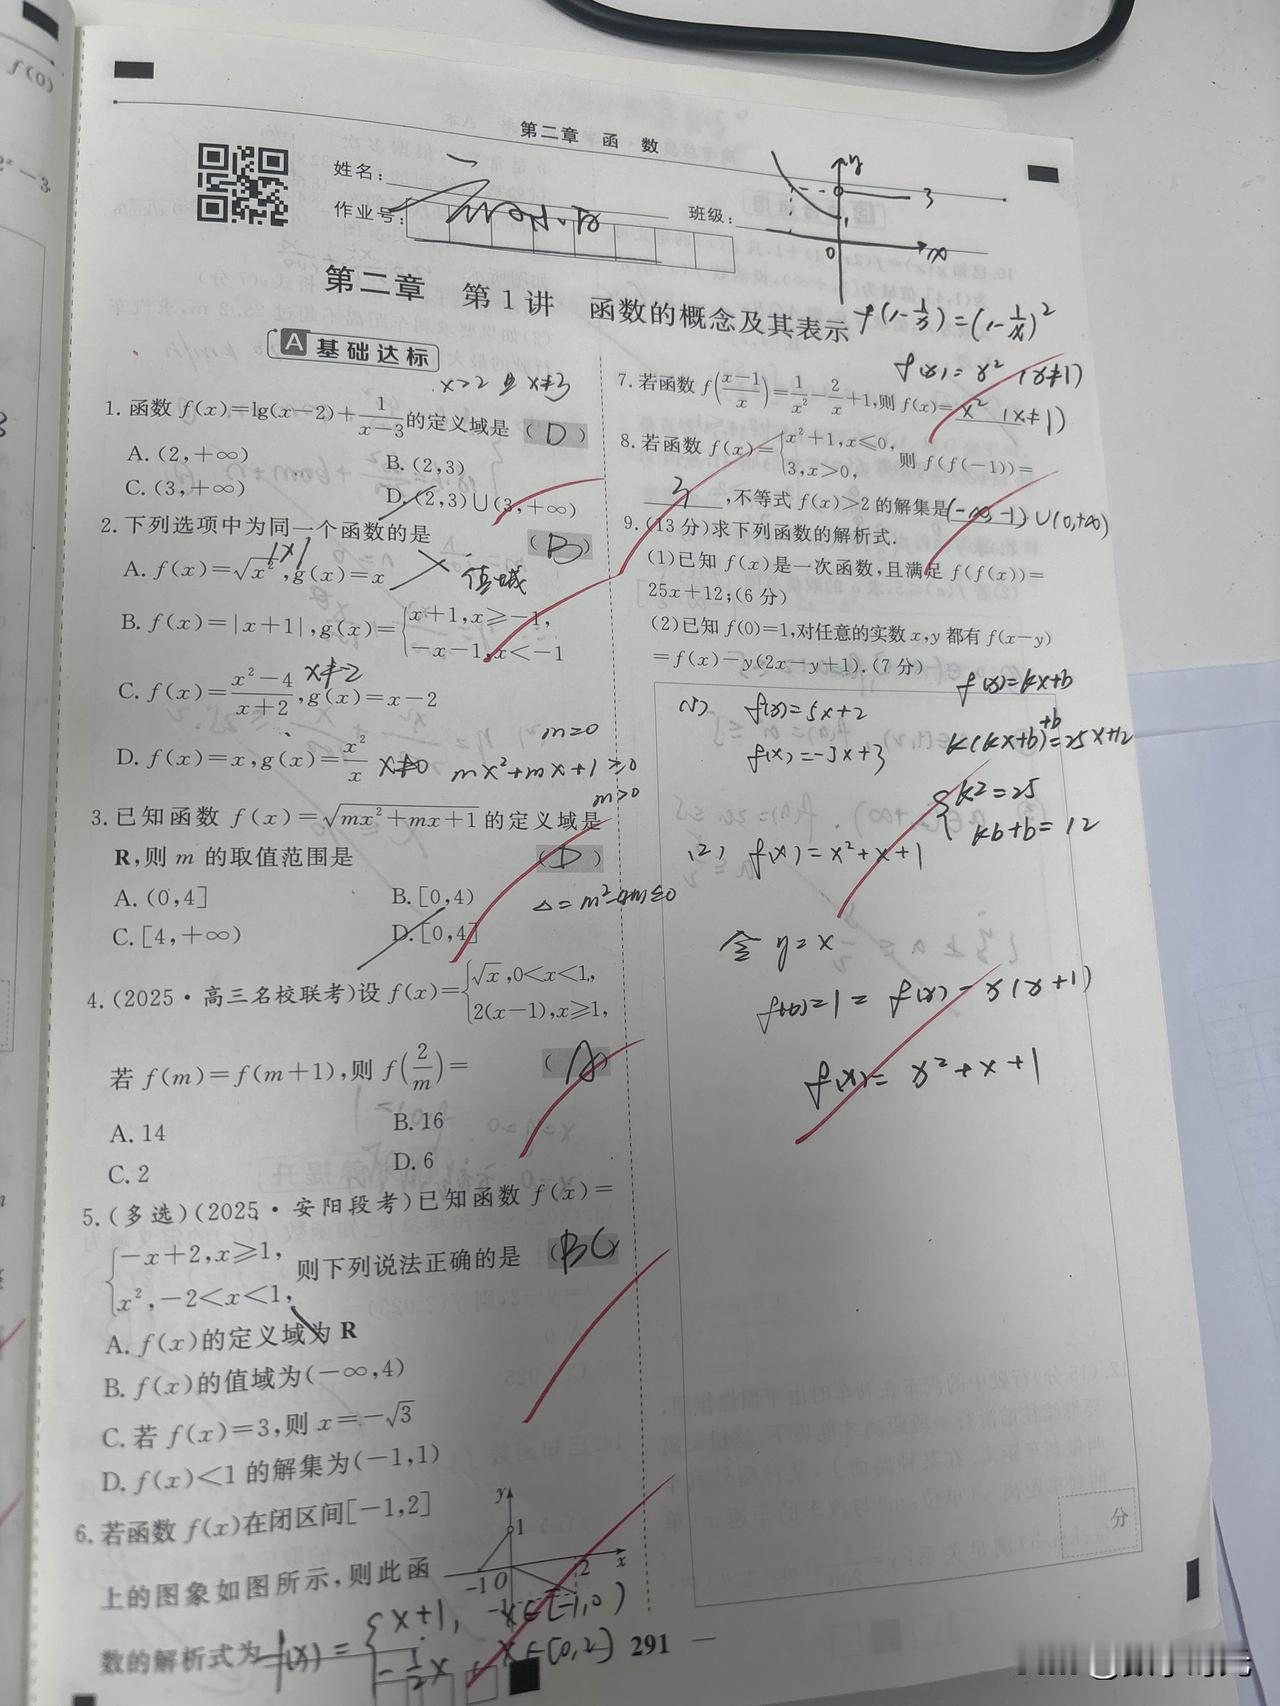 f(0)
第二章 函 数
姓名:
作业号:
班级:
y
3
1
0
x
第二章 第1讲 函数的概念及其表示
f(1-1/x)=(1-1/x)²
A 基础达标
x>2且x≠3
1.函数 f(x)=lg(x-2)+1/(x-3)的定义域是 (D)
A.(2,+∞)
B.(2,3)
C.(3,+∞)
D.(2,3)∪(3,+∞)
2.下列选项中为同一个函数的是 (B)
|x|
A.f(x)=√x²,g(x)=x
值域
B.f(x)=|x+1|,g(x)={x+1,x≥-1,
-x-1,x<-1
x≠-2
C.f(x)=(x²-4)/(x+2),g(x)=x-2
m=0
D.f(x)=x,g(x)=x²/x x≠0 mx²+mx+1≥0
m>0
3.已知函数 f(x)=√(mx²+mx+1)的定义域是
R,则 m 的取值范围是 (D)
A.(0,4]
B.[0,4)
Δ=m²-4m≤0
C.[4,+∞)
D.[0,4]
4.(2025·高三名校联考)设 f(x)={√x,0<x<1,
2(x-1),x≥1,
若 f(m)=f(m+1),则 f(2/m)= (A)
A.14
B.16
C.2
D.6
5.(多选)(2025·安阳段考)已知函数 f(x)=
{-x+2,x≥1,
x²,-2<x<1,
则下列说法正确的是 (BC)
A.f(x)的定义域为 R
B.f(x)的值域为(-∞,4)
C.若 f(x)=3,则 x=-√3
D.f(x)<1 的解集为(-1,1)
6.若函数 f(x)在闭区间[-1,2]
上的图象如图所示,则此函
数的解析式为 f(x)={x+1, x∈[-1,0)
-1/2x, x∈[0,2]
y
1
-1 O 2 x
-1
f(x)=x² (x≠1)
7.若函数 f((x-1)/x)=1/x²-2/x+1,则 f(x)=x² (x≠1)
8.若函数 f(x)={x²+1,x≤0,
3,x>0,
则 f(f(-1))=
3,不等式 f(x)>2的解集是(-∞,-1)∪(0,+∞)
9.(13分)求下列函数的解析式.
(1)已知 f(x)是一次函数,且满足 f(f(x))=
25x+12;(6分)
(2)已知 f(0)=1,对任意的实数 x,y 都有 f(x-y)
=f(x)-y(2x-y+1).(7分)
f(x)=kx+b
(1) f(x)=5x+2
k(kx+b)+b=25x+12
f(x)=-5x+3
k²=25
kb+b=12
(2) f(x)=x²+x+1
令 y=x
f(0)=1=f(x)-x(x+1)
f(x)=x²+x+1
分
291